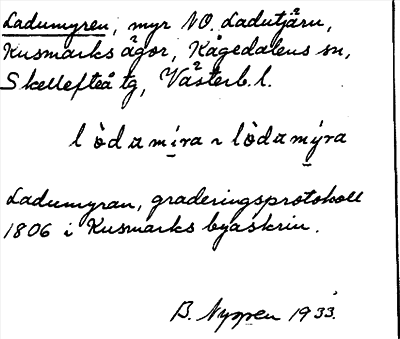 Ladumyren, myr NO. Ladutjärn,
Kusmarks ägor, Kågedalens sn,
Skellefteå tg, Västerb. l.
lòdamíra ~ lòdamýra
Ladumyran, graderingsprotokoll
1806 i Kusmarks byaskrin.
B. Nyppen 1933.